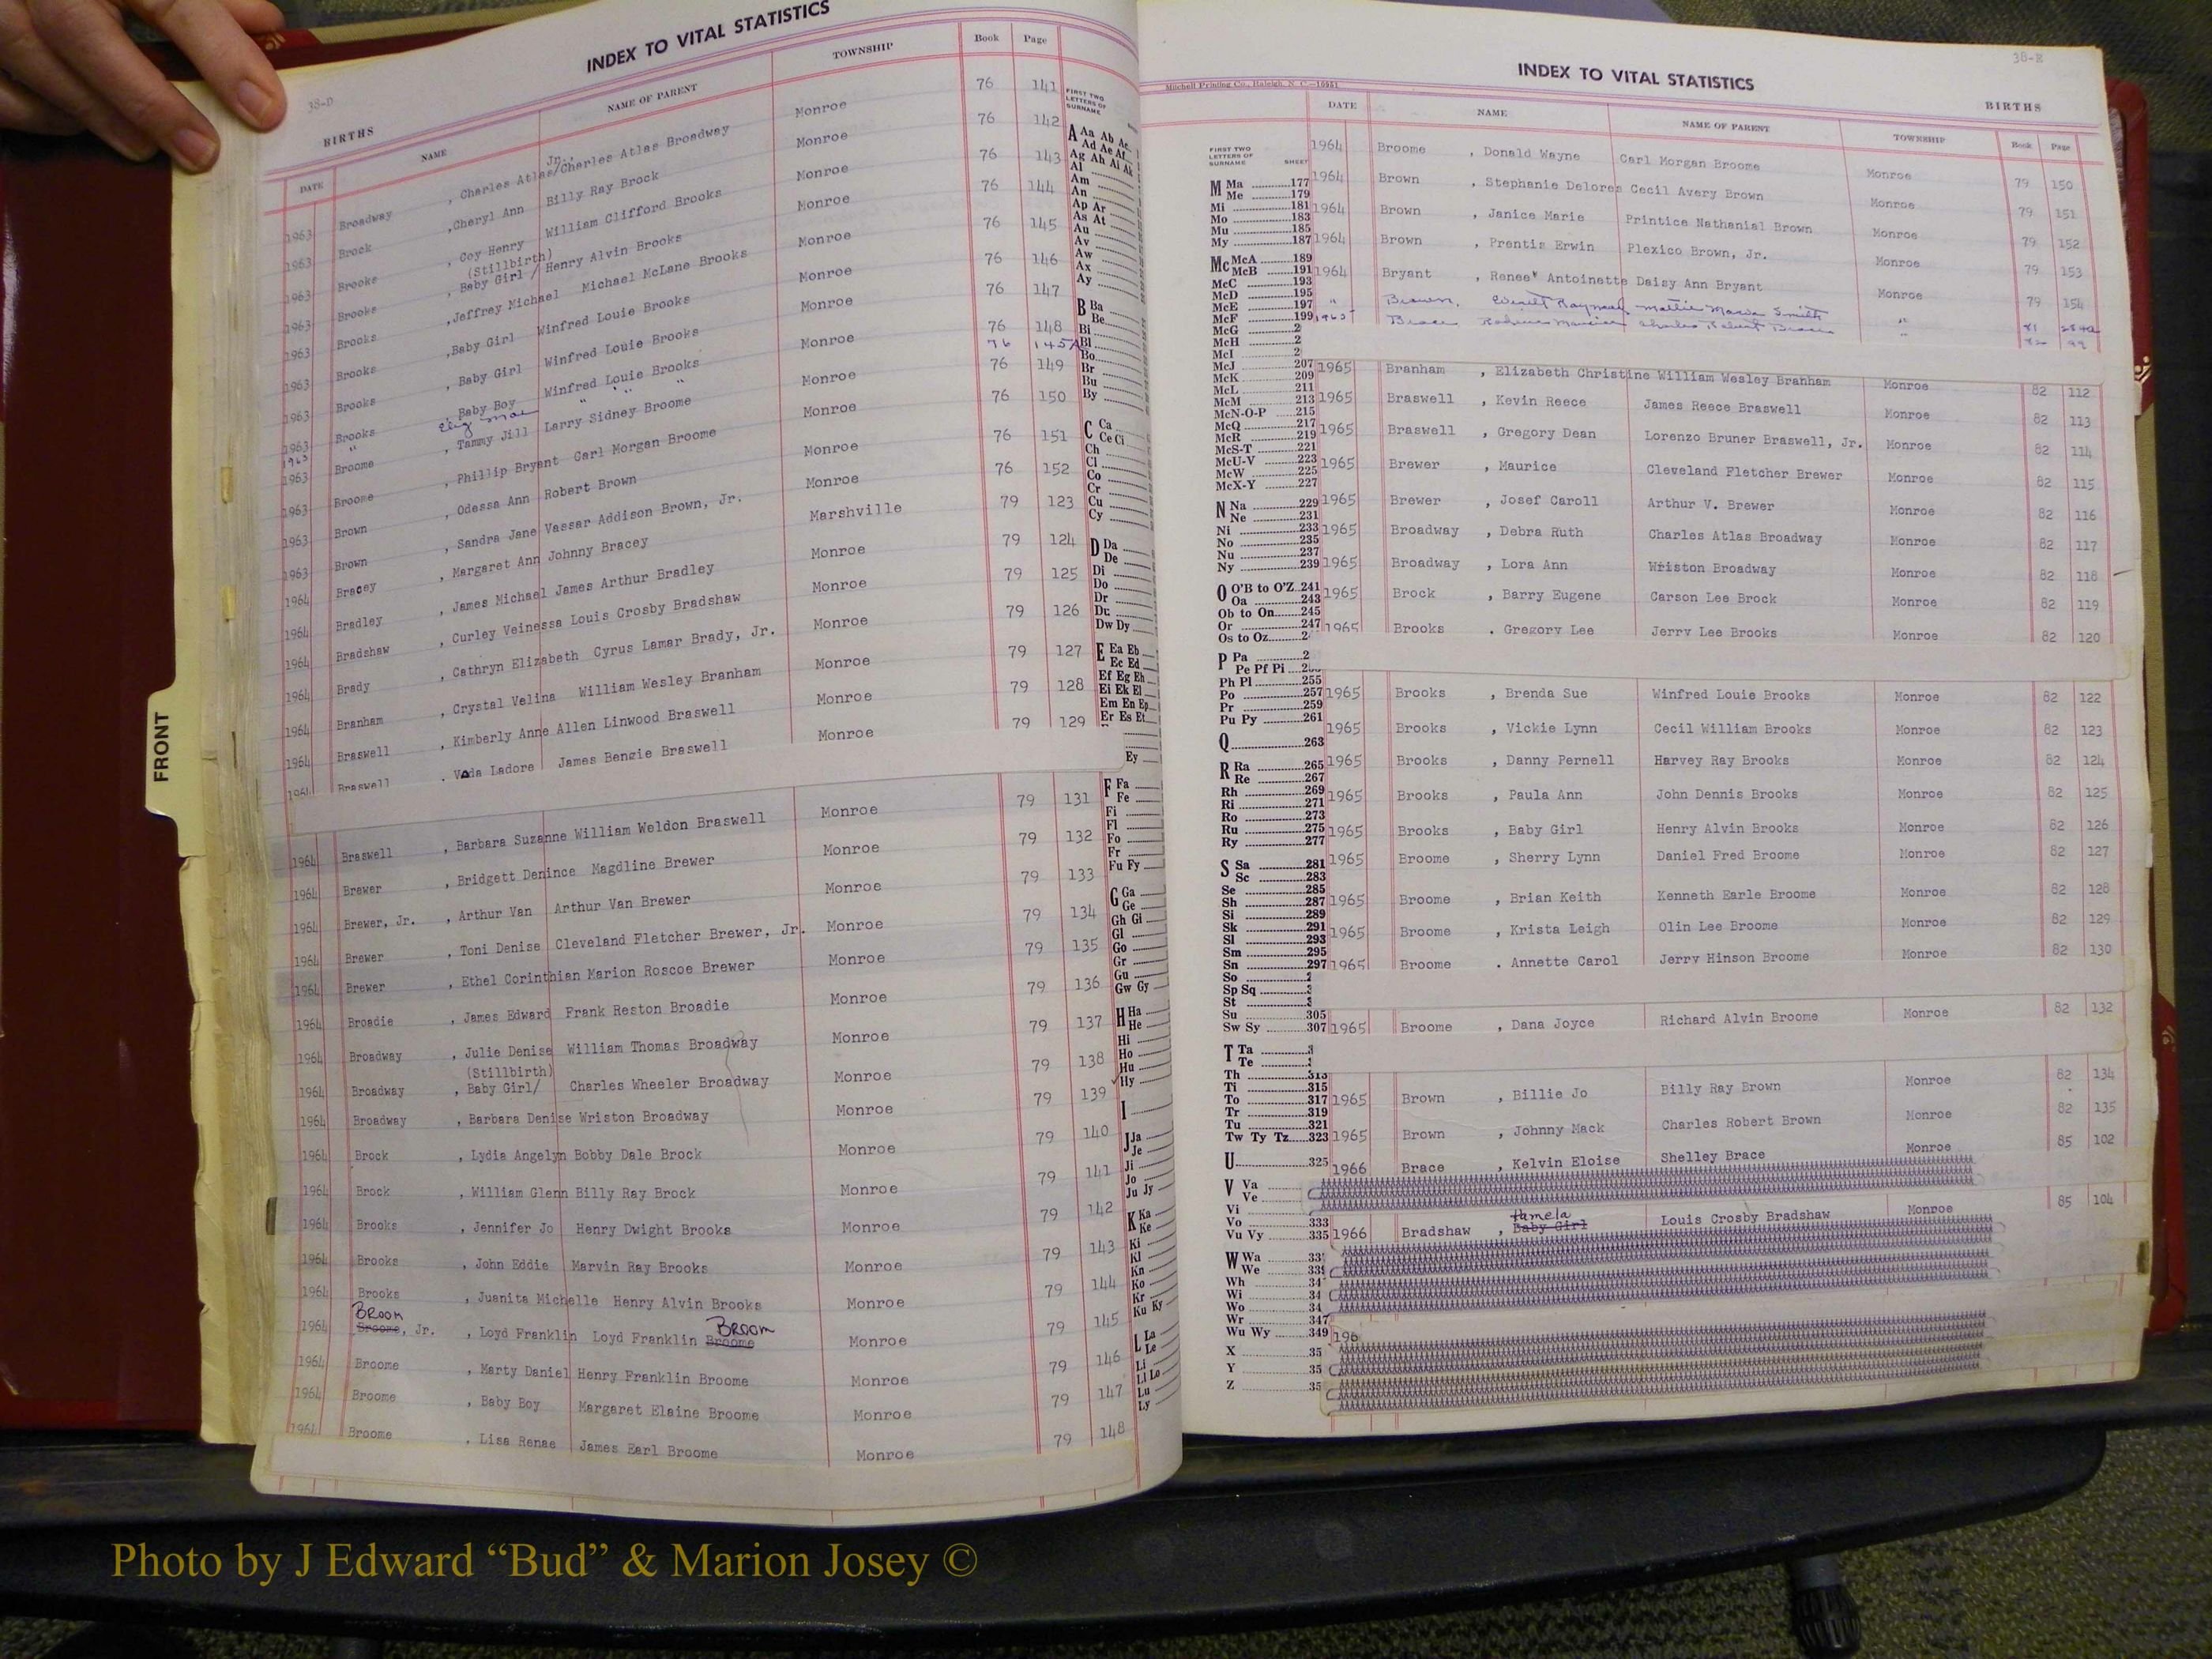 INDEX TO VITAL STATISTICS
38-D
BIRTHS
DATE NAME NAME OF PARENT TOWNSHIP Book Page
1963 Broadway , Charles Atlas/Jr., Charles Atlas Broadway Monroe 76 141
1963 Brock , Cheryl Ann Billy Ray Brock Monroe 76 142
1963 Brooks , Coy Henry William Clifford Brooks Monroe 76 143
1963 Brooks , Baby Girl / (Stillbirth) Henry Alvin Brooks Monroe 76 144
1963 Brooks , Jeffrey Michael Michael McLane Brooks Monroe 76 145
1963 Brooks , Baby Girl Winfred Louie Brooks Monroe 76 146
1963 Brooks , Baby Girl Winfred Louie Brooks Monroe 76 147
1963 Brooks , Baby Boy Winfred Louie Brooks Monroe 76 148
1963 " " " " 76 145A
1963 Broome , Tammy Jill Larry Sidney Broome Monroe 76 149
1963 Broome , Phillip Bryant Carl Morgan Broome Monroe 76 150
1963 Brown , Odessa Ann Robert Brown Monroe 76 151
1963 Brown , Sandra Jane Vassar Addison Brown, Jr. Monroe 76 152
1964 Bracey , Margaret Ann Johnny Bracey Marshville 79 123
1964 Bradley , James Michael James Arthur Bradley Monroe 79 124
1964 Bradshaw , Curley Veinessa Louis Crosby Bradshaw Monroe 79 125
1964 Brady , Cathryn Elizabeth Cyrus Lamar Brady, Jr. Monroe 79 126
1964 Branham , Crystal Velina William Wesley Branham Monroe 79 127
1964 Braswell , Kimberly Anne Allen Linwood Braswell Monroe 79 128
1964 Braswell , Vada Ladore James Bengie Braswell Monroe 79 129
1964 Braswell , Barbara Suzanne William Weldon Braswell Monroe 79 131
1964 Brewer , Bridgett Denince Magdline Brewer Monroe 79 132
1964 Brewer, Jr. , Arthur Van Arthur Van Brewer Monroe 79 133
1964 Brewer , Toni Denise Cleveland Fletcher Brewer, Jr. Monroe 79 134
1964 Brewer , Ethel Corinthian Marion Roscoe Brewer Monroe 79 135
1964 Broadie , James Edward Frank Reston Broadie Monroe 79 136
1964 Broadway , Julie Denise William Thomas Broadway Monroe 79 137
1964 Broadway , Baby Girl/ (Stillbirth) Charles Wheeler Broadway Monroe 79 138
1964 Broadway , Barbara Denise Wriston Broadway Monroe 79 139
1964 Brock , Lydia Angelyn Bobby Dale Brock Monroe 79 140
1964 Brock , William Glenn Billy Ray Brock Monroe 79 141
1964 Brooks , Jennifer Jo Henry Dwight Brooks Monroe 79 142
1964 Brooks , John Eddie Marvin Ray Brooks Monroe 79 143
1964 Brooks , Juanita Michelle Henry Alvin Brooks Monroe 79 144
BROOM BROOM
1964 Broome, Jr. , Loyd Franklin Loyd Franklin Broome Monroe 79 145
1964 Broome , Marty Daniel Henry Franklin Broome Monroe 79 146
1964 Broome , Baby Boy Margaret Elaine Broome Monroe 79 147
1964 Broome , Lisa Renae James Earl Broome Monroe 79 148
FIRST TWO
LETTERS OF
SURNAME
A Aa Ab Ac
Ad Ae Af
Ag Ah Ai Ak
Al
Am
An
Ap Ar
As At
Au
Av
Aw
Ax
Ay
B Ba
Be
Bi
Bl
Bo
Br
Bu
By
C Ca
Ce Ci
Ch
Cl
Co
Cr
Cu
Cy
D Da
De
Di
Do
Dr
Du
Dw Dy
E Ea Eb
Ec Ed
Ef Eg Eh
Ei Ek El
Em En Ep
Er Es Et
Ey
F Fa
Fe
Fi
Fl
Fo
Fr
Fu Fy
G Ga
Ge
Gh Gi
Gl
Go
Gr
Gu
Gw Gy
H Ha
He
Hi
Ho
Hu
Hy
I
J Ja
Je
Ji
Jo
Ju Jy
K Ka
Ke
Ki
Kl
Kn
Ko
Kr
Ku Ky
L La
Le
Li
Ll Lo
Lu
Ly
FRONT
INDEX TO VITAL STATISTICS
38-E
Mitchell Printing Co., Raleigh, N. C.—10951
BIRTHS
DATE NAME NAME OF PARENT TOWNSHIP Book Page
1964 Broome , Donald Wayne Carl Morgan Broome Monroe 79 150
1964 Brown , Stephanie Delores Cecil Avery Brown Monroe 79 151
1964 Brown , Janice Marie Printice Nathanial Brown Monroe 79 152
1964 Brown , Prentis Erwin Plexico Brown, Jr. Monroe 79 153
1964 Bryant , Renee' Antoinette Daisy Ann Bryant Monroe 79 154
" Brown, Mattie Maria Smith "
1965 Charles Robert " 82 99
1965 Branham , Elizabeth Christine William Wesley Branham Monroe 82 112
1965 Braswell , Kevin Reece James Reece Braswell Monroe 82 113
1965 Braswell , Gregory Dean Lorenzo Bruner Braswell, Jr. Monroe 82 114
1965 Brewer , Maurice Cleveland Fletcher Brewer Monroe 82 115
1965 Brewer , Josef Caroll Arthur V. Brewer Monroe 82 116
1965 Broadway , Debra Ruth Charles Atlas Broadway Monroe 82 117
1965 Broadway , Lora Ann Wriston Broadway Monroe 82 118
1965 Brock , Barry Eugene Carson Lee Brock Monroe 82 119
1965 Brooks , Gregory Lee Jerry Lee Brooks Monroe 82 120
1965 Brooks , Brenda Sue Winfred Louie Brooks Monroe 82 122
1965 Brooks , Vickie Lynn Cecil William Brooks Monroe 82 123
1965 Brooks , Danny Pernell Harvey Ray Brooks Monroe 82 124
1965 Brooks , Paula Ann John Dennis Brooks Monroe 82 125
1965 Brooks , Baby Girl Henry Alvin Brooks Monroe 82 126
1965 Broome , Sherry Lynn Daniel Fred Broome Monroe 82 127
1965 Broome , Brian Keith Kenneth Earle Broome Monroe 82 128
1965 Broome , Krista Leigh Olin Lee Broome Monroe 82 129
1965 Broome , Annette Carol Jerry Hinson Broome Monroe 82 130
1965 Broome , Dana Joyce Richard Alvin Broome Monroe 82 132
1965 Brown , Billie Jo Billy Ray Brown Monroe 82 134
1965 Brown , Johnny Mack Charles Robert Brown Monroe 82 135
1966 Brace , Kelvin Eloise Shelley Brace Monroe 85 102
Pamela
1966 Bradshaw , Baby Girl Louis Crosby Bradshaw Monroe 85 104
196
FIRST TWO
LETTERS OF
SURNAME SHEET
M Ma 177
Me 179
Mi 181
Mo 183
Mu 185
My 187
Mc McA 189
McB 191
McC 193
McD 195
McE 197
McF 199
McG 2
McH 2
McI 2
McJ 207
McK 209
McL 211
McM 213
McN-O-P 215
McQ 217
McR 219
McS-T 221
McU-V 223
McW 225
McX-Y 227
N Na 229
Ne 231
Ni 233
No 235
Nu 237
Ny 239
O O'B to O'Z 241
Oa 243
Ob to On 245
Or 247
Os to Oz 2
P Pa 2
Pe Pf Pi 2
Ph Pl 255
Po 257
Pr 259
Pu Py 261
Q 263
R Ra 265
Re 267
Rh 269
Ri 271
Ro 273
Ru 275
Ry 277
S Sa 281
Sc 283
Se 285
Sh 287
Si 289
Sk 291
Sl 293
Sm 295
Sn 297
So
Sp Sq
St
Su 305
Sw Sy 307
T Ta
Te
Th 313
Ti 315
To 317
Tr 319
Tu 321
Tw Ty Tz 323
U 325
V Va
Ve
Vi
Vo 333
Vu Vy 335
W Wa 33
We 339
Wh 34
Wi 34
Wo 34
Wr 347
Wu Wy 349
X 35
Y 35
Z 35
Photo by J Edward “Bud” & Marion Josey ©